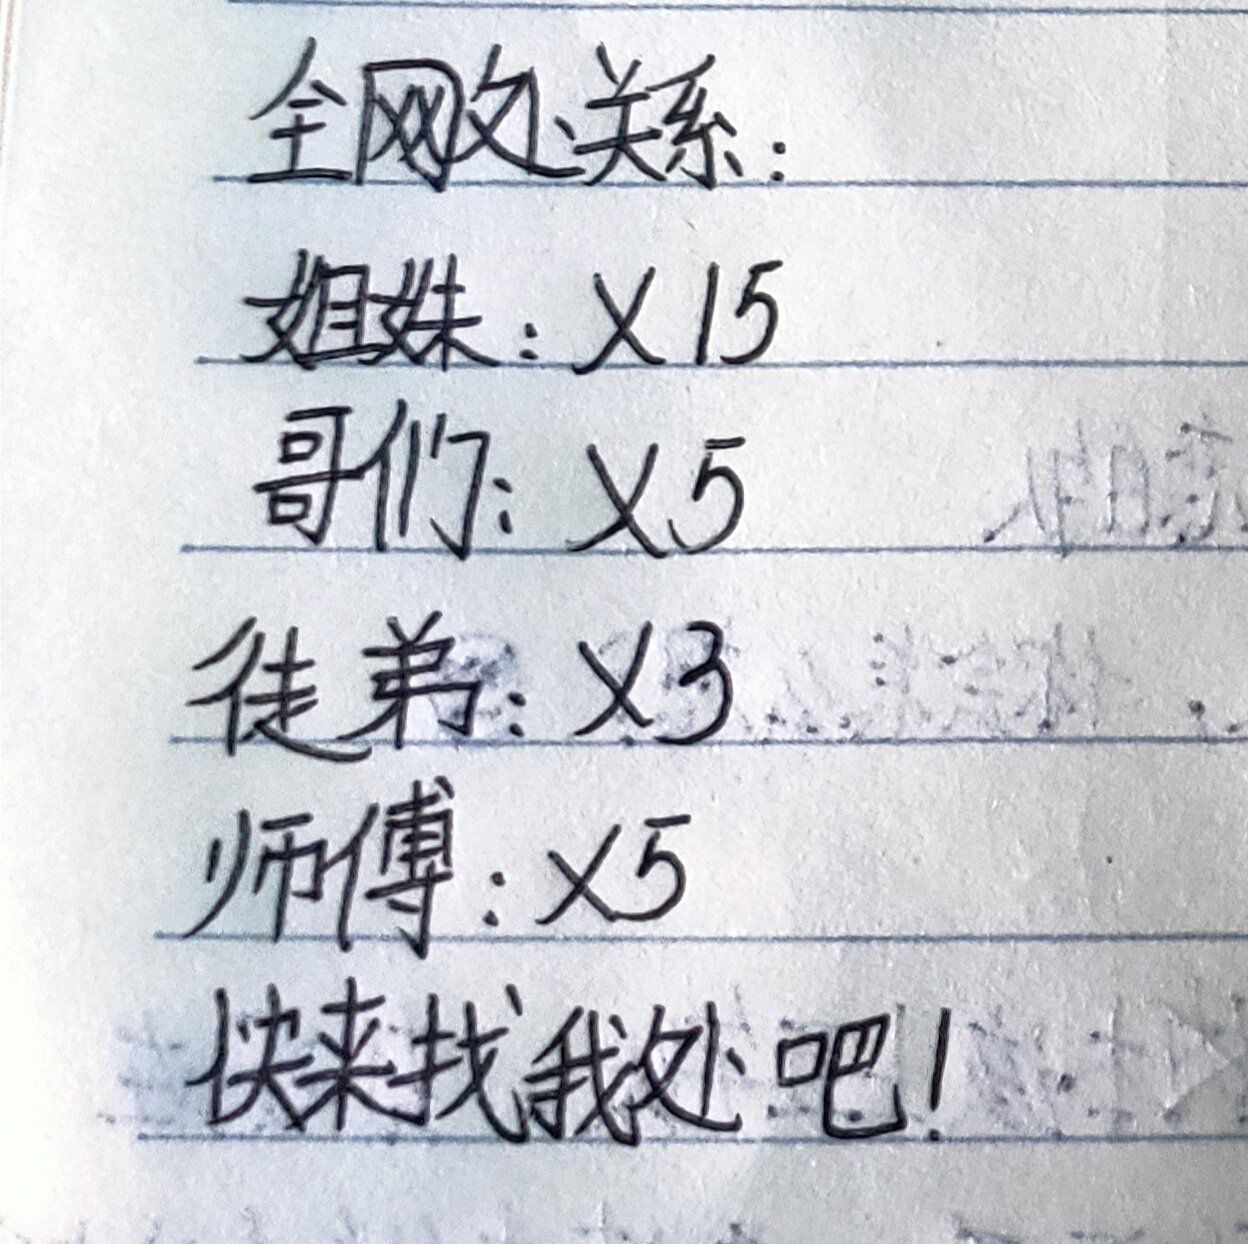 全网处关系:
姐妹:X15
哥们:X5
徒弟:X3
师傅:X5
快来找我处吧!